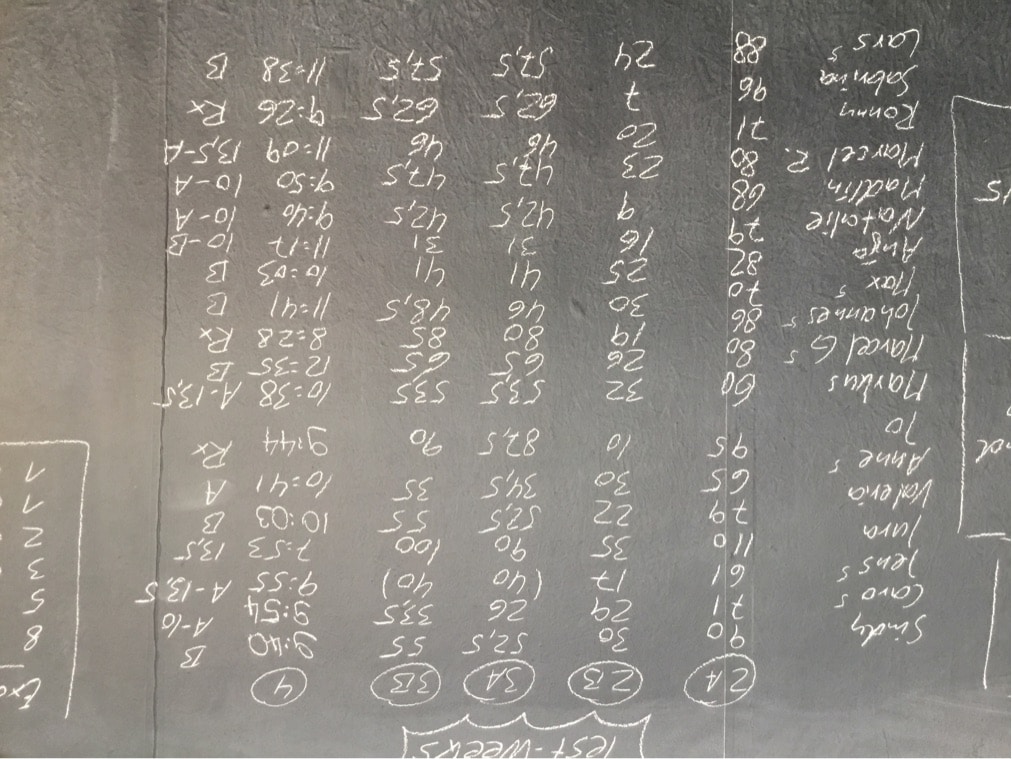 Test-Weeks
2A 2B 3A 3B 4
Sindy 90 30 52,5 55 9:40 B
Caro s 71 29 26 33,5 9:54 A-10
Jens s 61 17 (40 40) 9:55 A-13,5
Jura 110 35 90 100 7:53 13,5
Valeria 79 22 52,5 55 10:03 B
Anne s 65 30 34,5 35 10:41 A
Jo 95 10 82,5 90 9:44 Rx
Markus 60 32 53,5 53,5 10:38 A-13,5
Marcel G s 80 26 65 65 12:35 B
Johannes s 86 19 80 85 8:28 Rx
Max s 70 30 46 48,5 11:41 B
Anga 82 25 41 41 10:03 B
Natalie 79 16 31 31 11:17 10-B
Madlin 68 9 42,5 42,5 9:40 10-A
Marcel R. 80 23 47,5 47,5 9:50 10-A
Ronny 71 20 46 46 11:09 13,5-A
Sabrina 96 7 62,5 62,5 9:26 Rx
Lars s 88 24 57,5 57,5 11:38 B
8
5
3
2
1
1